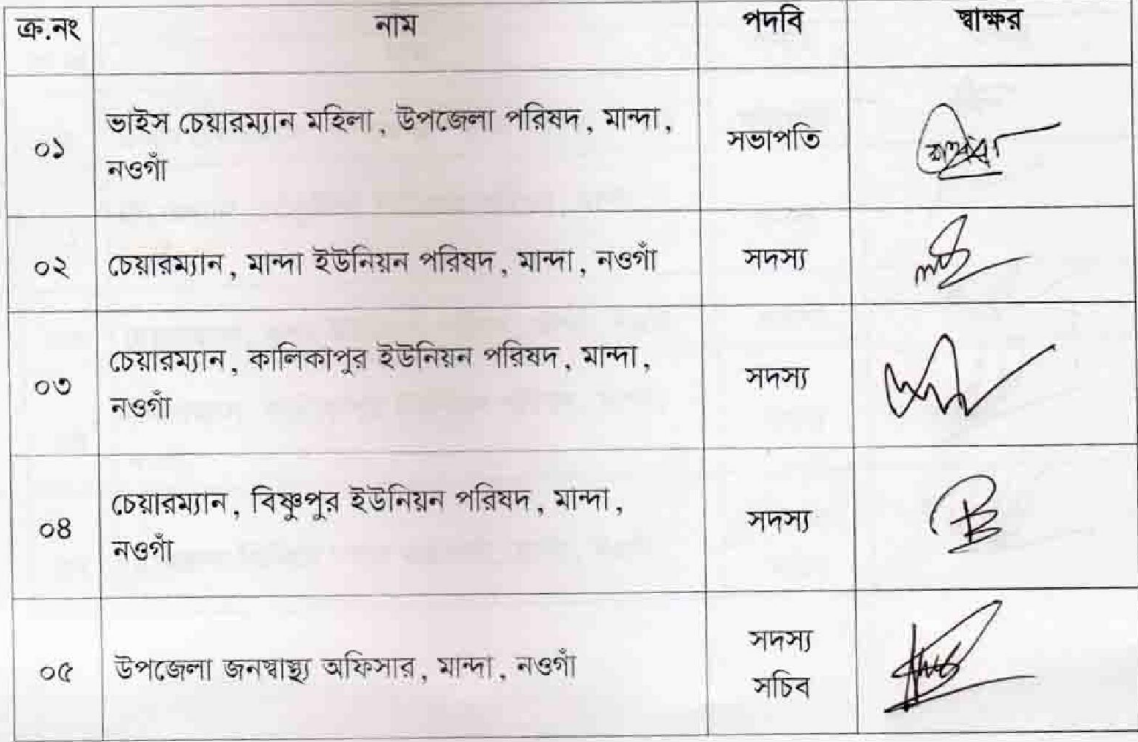 ক্র.নং নাম পদবি স্বাক্ষর
০১ ভাইস চেয়ারম্যান মহিলা, উপজেলা পরিষদ, মান্দা, সভাপতি
নওগাঁ
০২ চেয়ারম্যান, মান্দা ইউনিয়ন পরিষদ, মান্দা, নওগাঁ সদস্য
০৩ চেয়ারম্যান, কালিকাপুর ইউনিয়ন পরিষদ, মান্দা, সদস্য
নওগাঁ
০৪ চেয়ারম্যান, বিষ্ণুপুর ইউনিয়ন পরিষদ, মান্দা, সদস্য
নওগাঁ
০৫ উপজেলা জনস্বাস্থ্য অফিসার, মান্দা, নওগাঁ সদস্য
সচিব